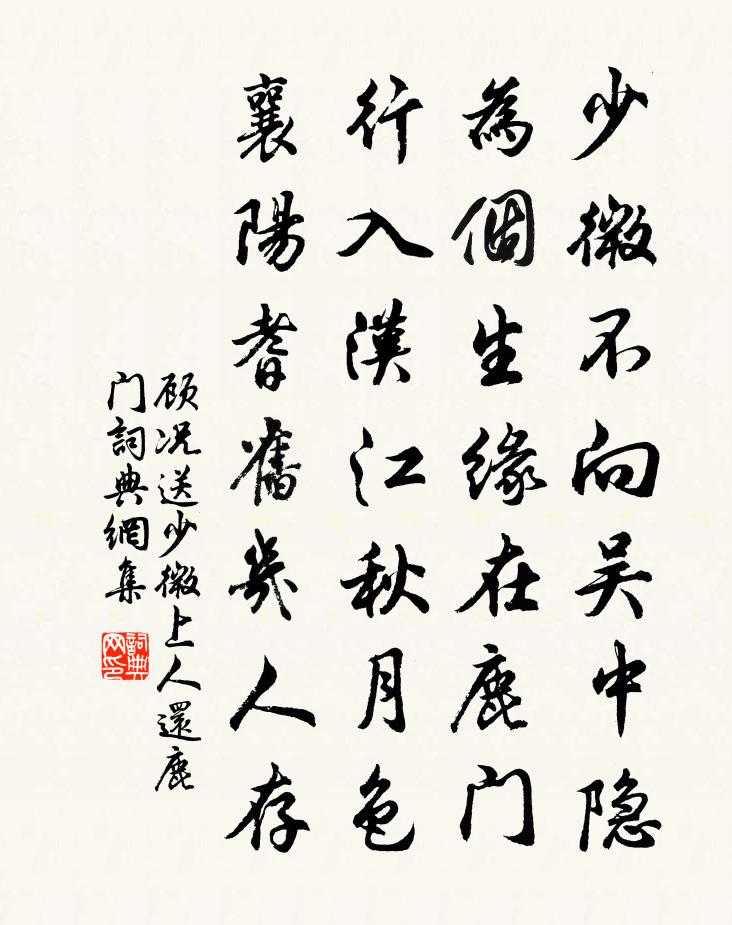 少微不向吴中隐
為個生緣在鹿门
行入漢江秋月色
襄陽耆舊幾人存
顾况送少微上人還鹿
门詞典網集
詞典
网印